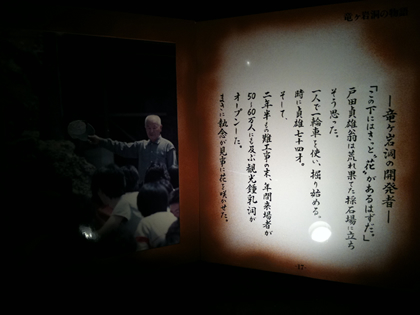 竜ヶ岩洞の物語
―竜ヶ岩洞の開発者―
「この下にはきっと“花”があるはずだ。」
戸田貞雄翁は荒れ果てた採石場に立ち
そう思った。
一人で一輪車を使い、掘り始める。
時に貞雄七十四才。
そして、
二年半もの難工事の末、年間来場者が
50~60万人にも及ぶ観光鍾乳洞が
オープンした。
まさに執念が見事に花を咲かせた。
17